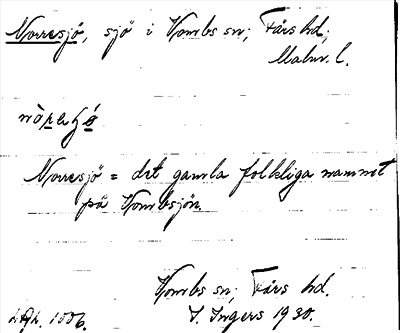 Norresjö, sjö i Vombs sn; Färs hd;
Malm. l.
Norresjö = det gamla folkliga namnet
på Vombsjön.
Vombs sn; Färs hd.
I. Ingers 1930.
1006.